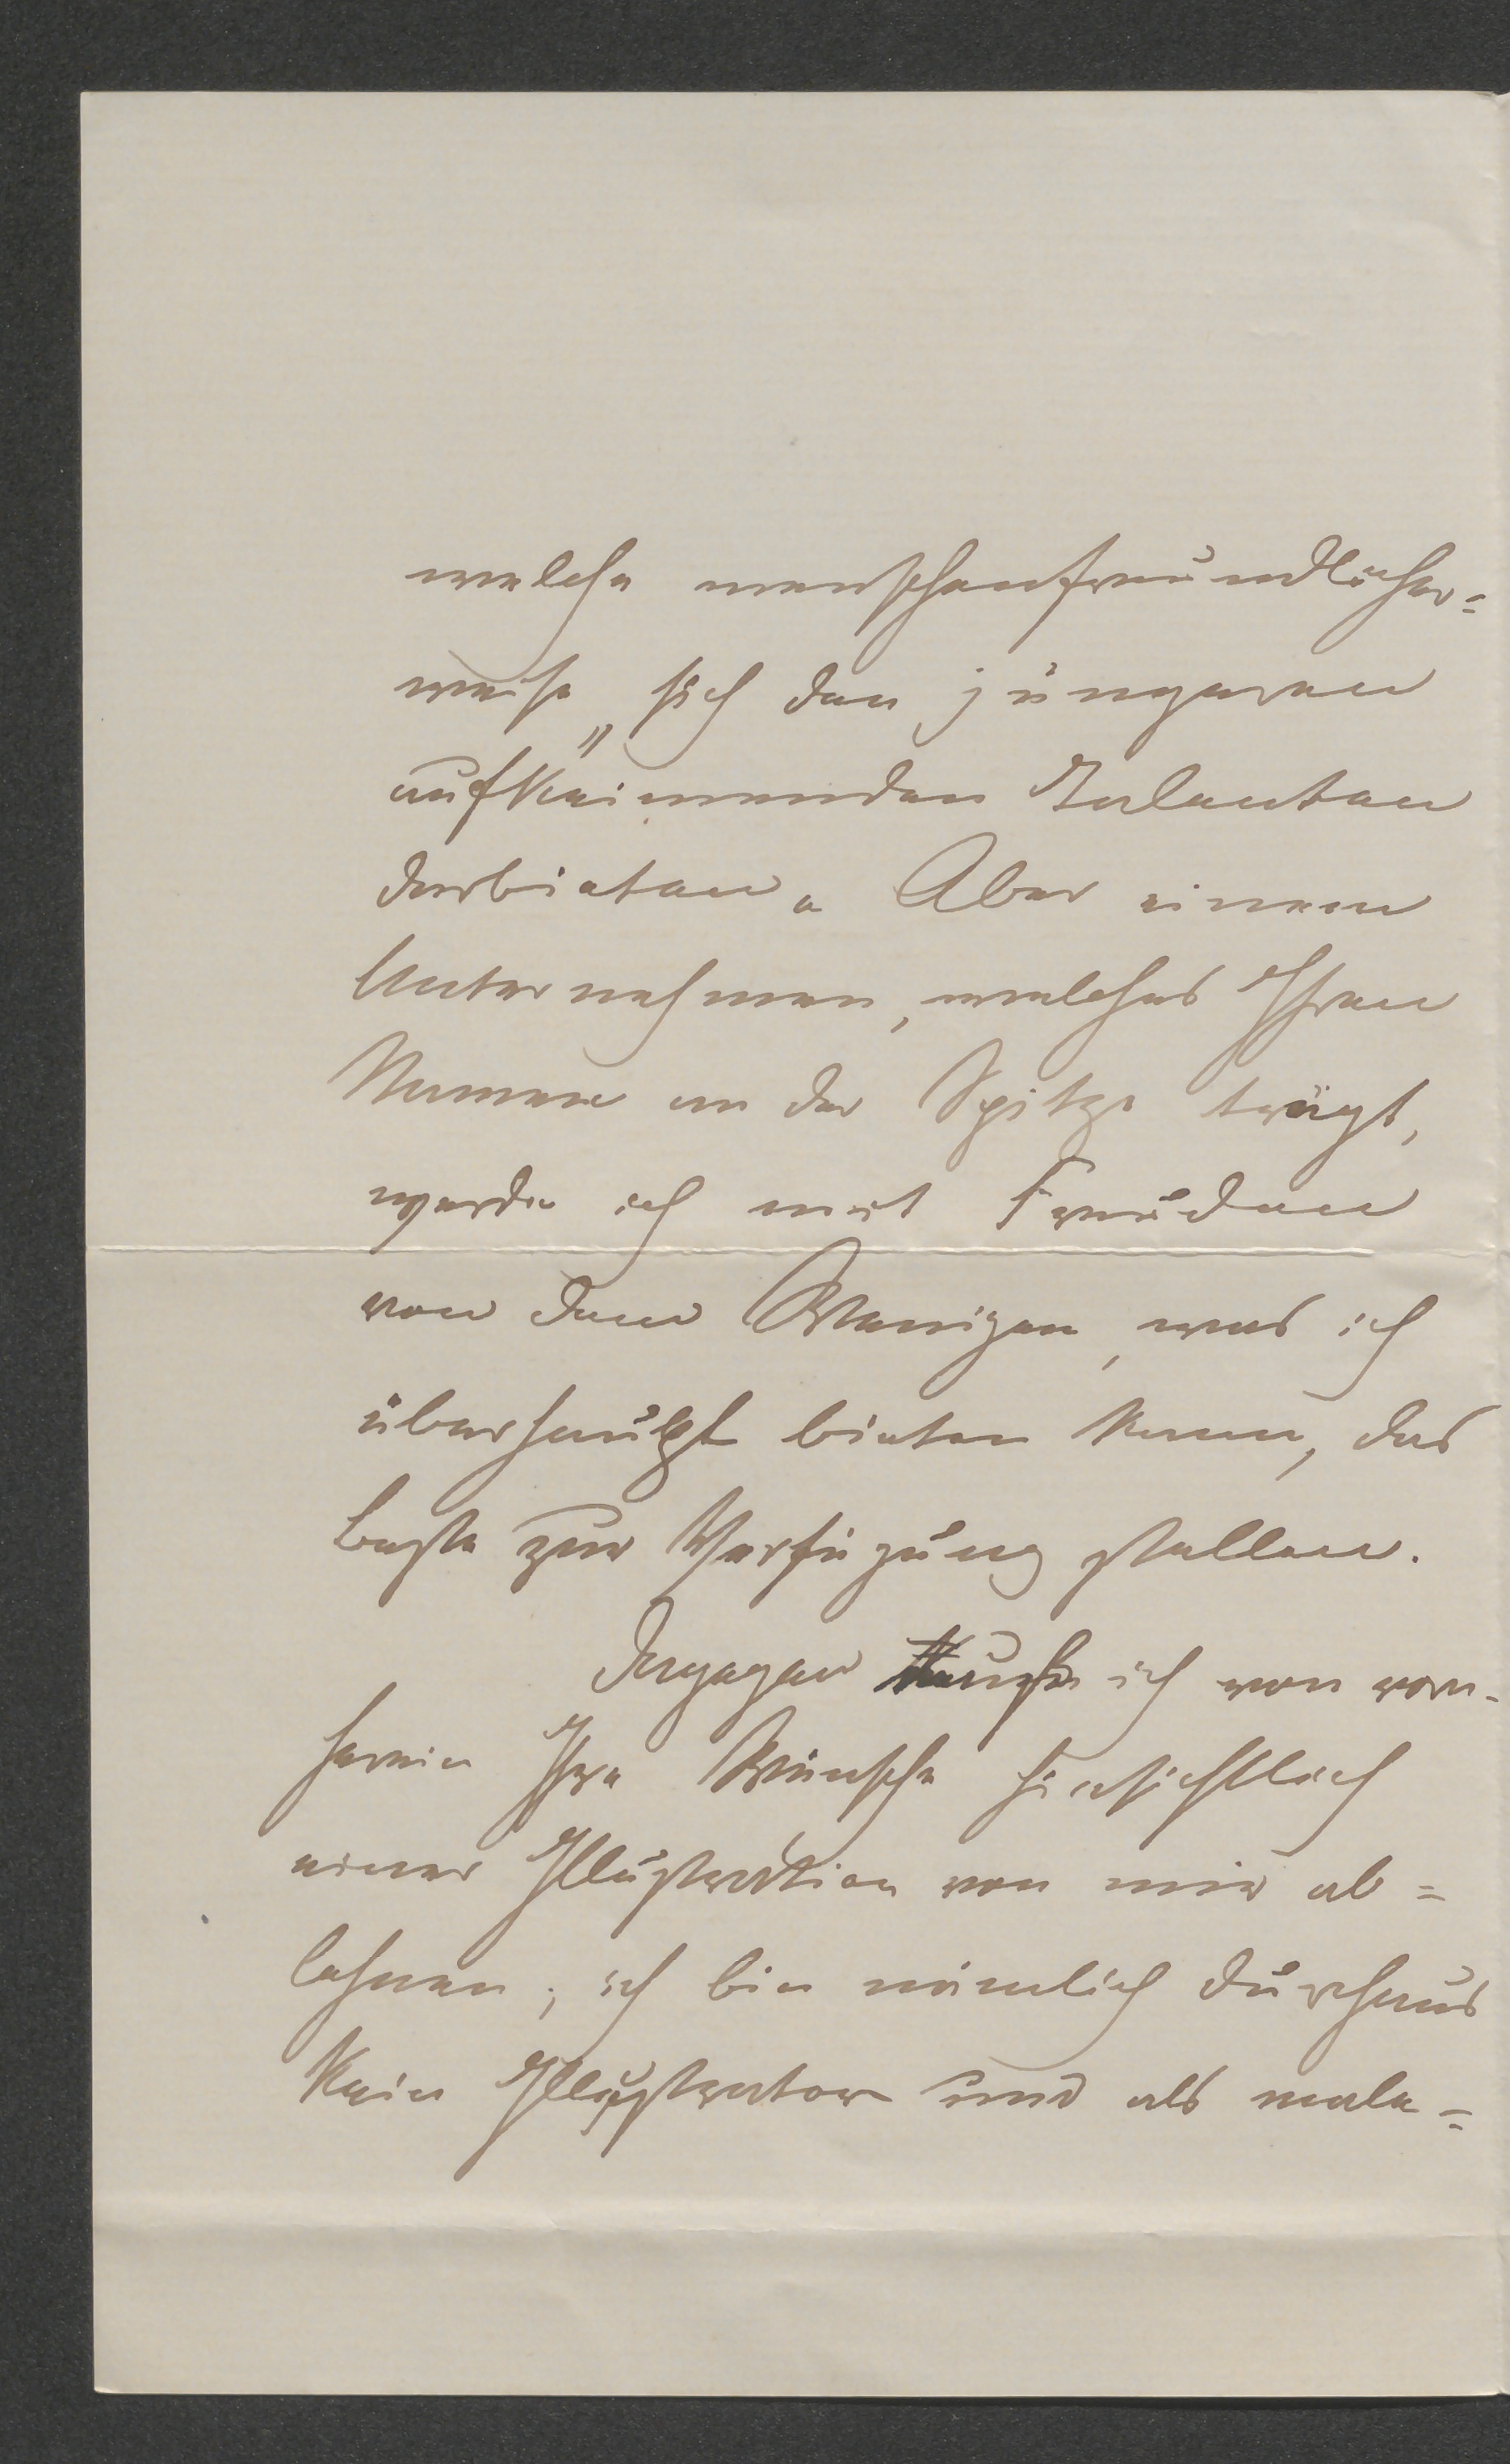 welche menschenfreundlicher=
weise „sich den jüngeren
aufkeimenden Talenten
darbieten“. Aber einem
Unternehmen, welches Ihren
Namen an der Spitze trägt,
werde ich mit Freuden
von dem Wenigen, was ich
überhaupt bieten kann, das
beste zur Verfügung stellen.
Dagegen muß ich von vorn-
herein Ihre Wünsche hinsichtlich
einer Illustration von mir ab=
lehnen; ich bin nämlich durchaus
kein Illustrator und als male=